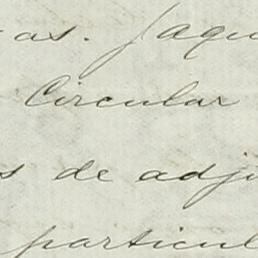 as. Jaqu
Circular
s de adju
particul